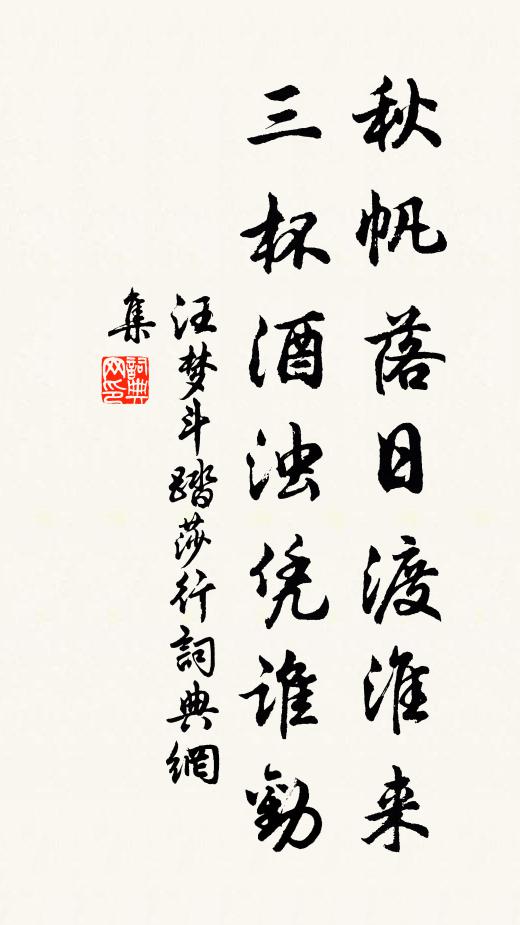 秋帆落日渡淮来
三杯酒浊凭谁勸
汪梦斗踏莎行詞典網
集
詞典网印